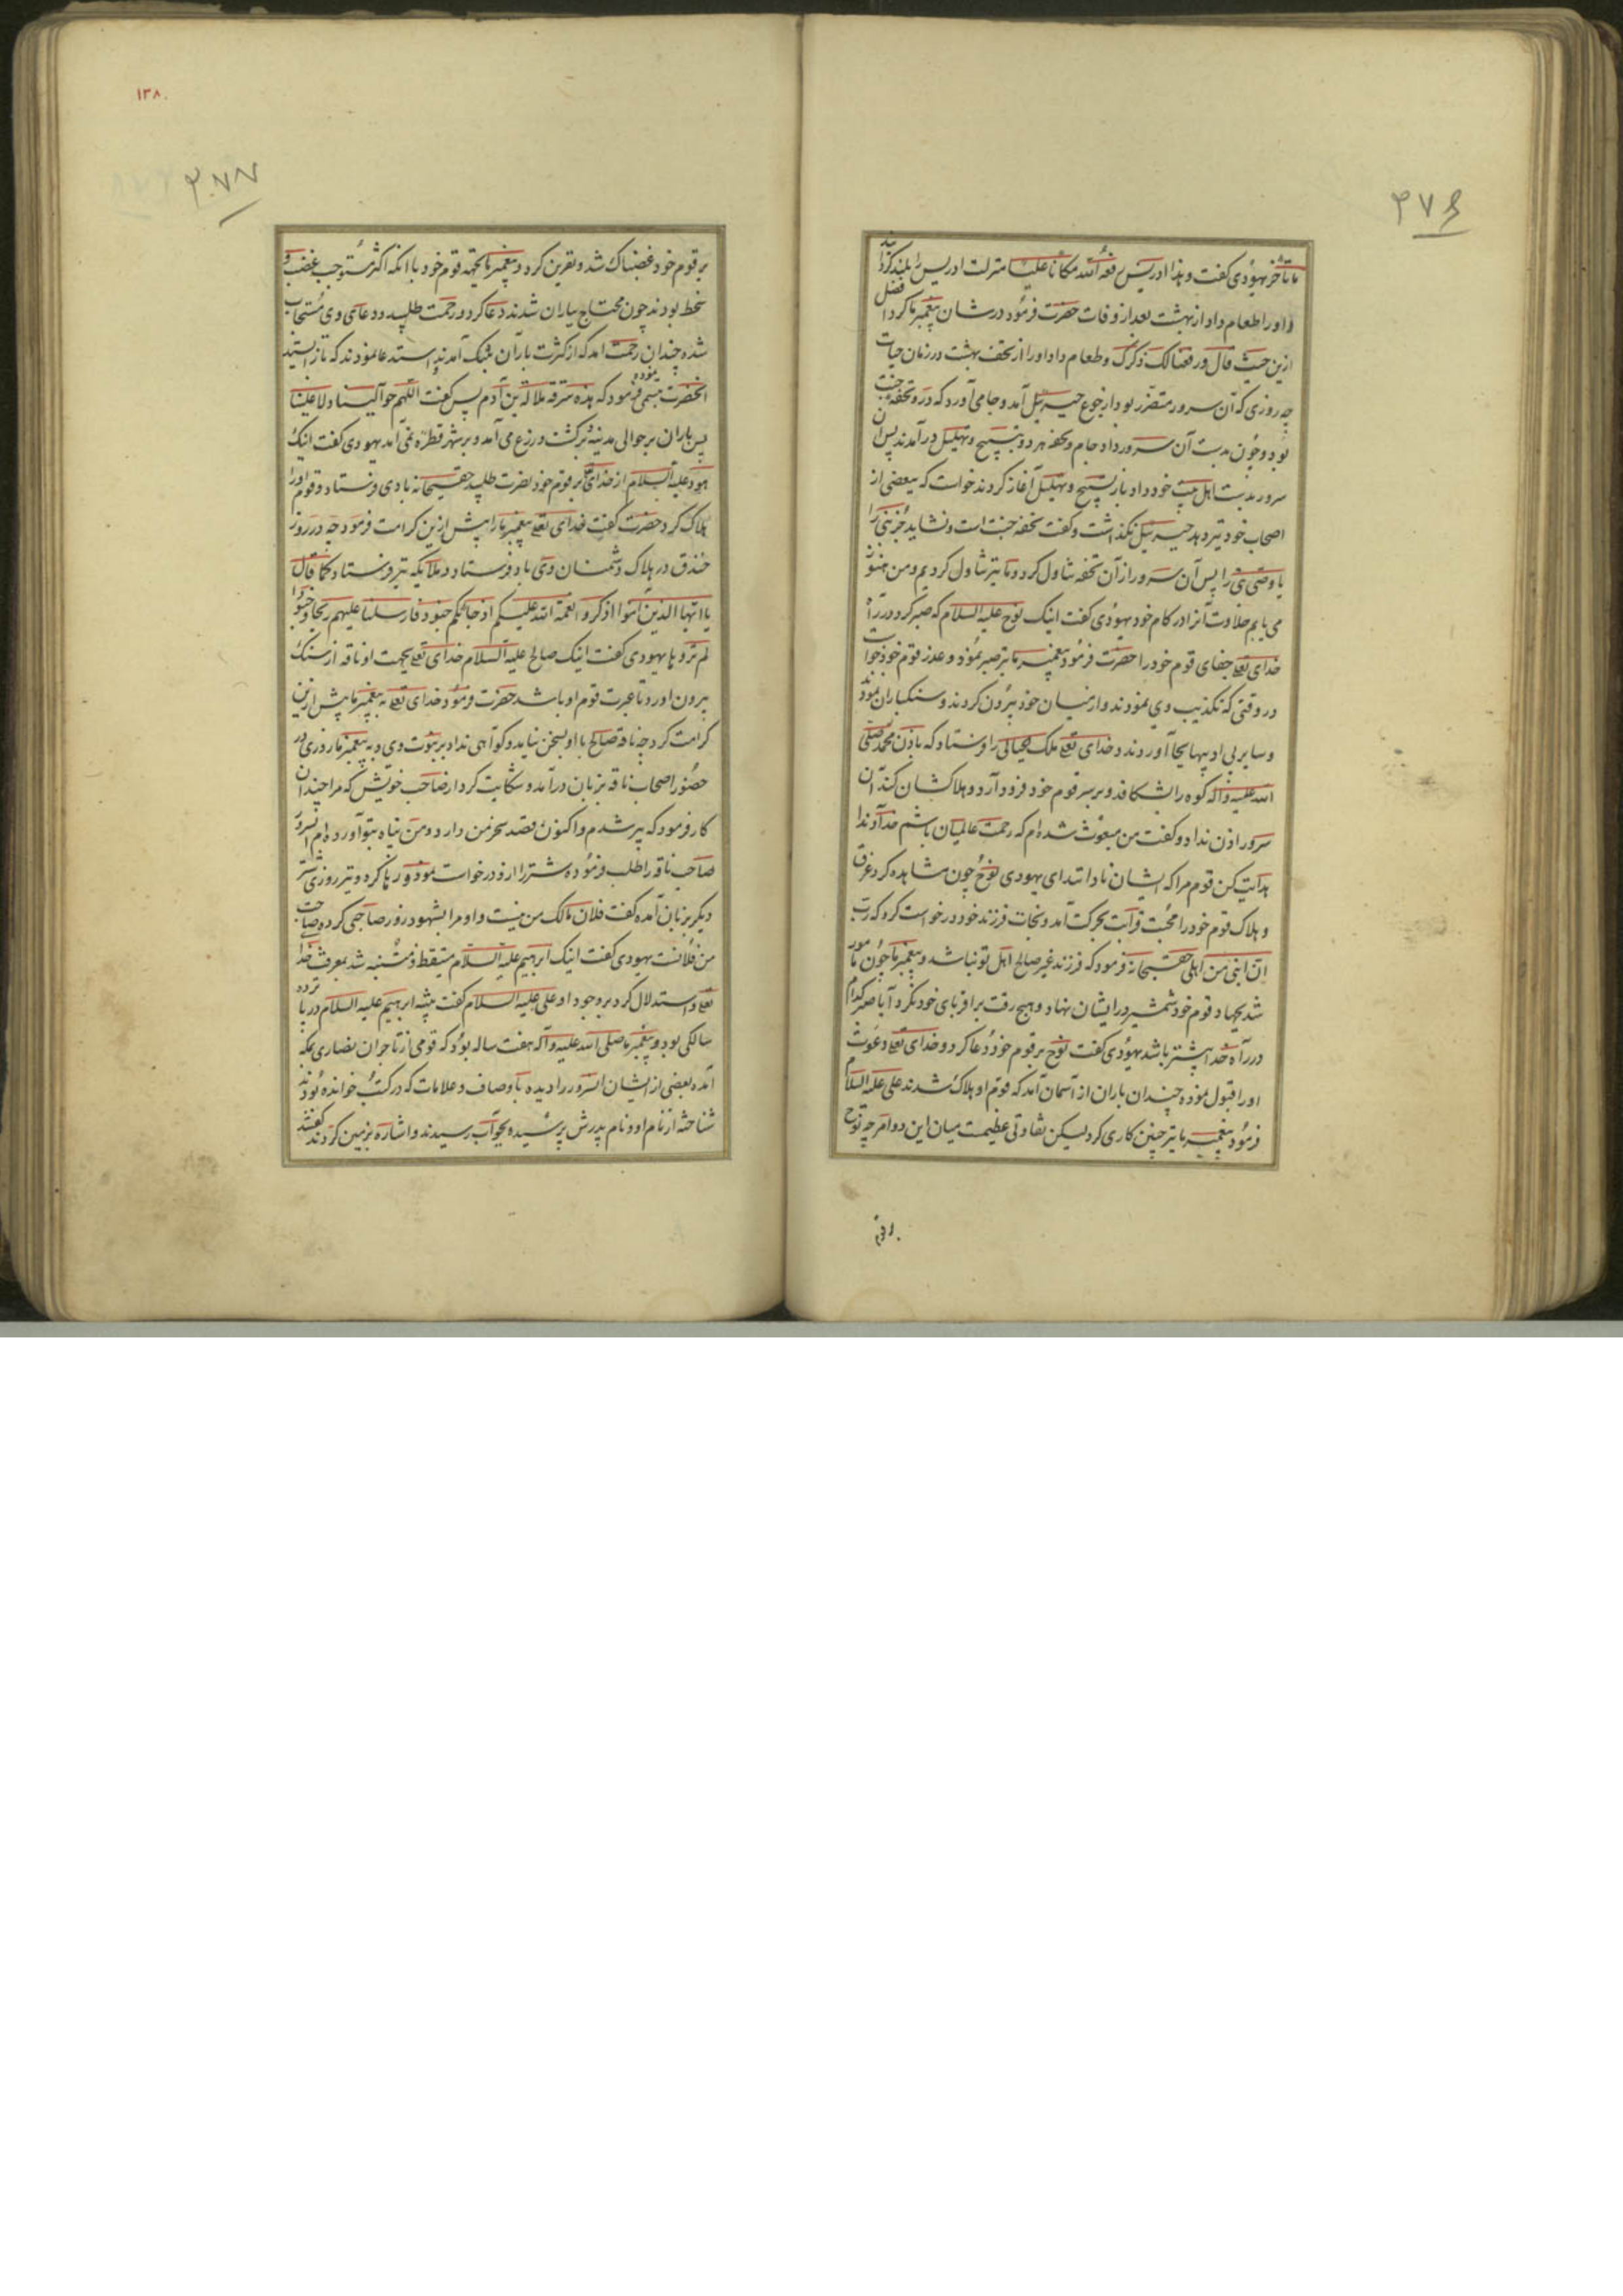 ۳۷۶
ما تأخر یهودی گفت و هذا ادریس رفعه الله مکانا علیا منزلت ادریس را بلند گردانید
و او را طعام داد از بهشت بعد از وفات حضرت فرمود در شان پیغمبر ما کرد افضل
ازین حیث قال و رفعنا لک ذکرک و طعام داد او را از تحف بهشت در زمان حیات
چه روزی که آن سرور متضرر بود از جوع جبرئیل آمد و جامی آورد که در و تحفه جنت
بود و چون بدست آن سرور داد جام و تحفه هر دو بتسبیح و تهلیل در آمدند پس آن
سرور بدست اهل بیت خود داد باز تسبیح و تهلیل آغاز کردند خواست که ببعضی از
اصحاب خود نیز دهد جبرئیل نگذاشت و گفت تحفه جنت است و نشاید جز نبی را
یا وصی نبی را پس آن سرور از آن تحفه تناول کرد و ما نیز تناول کردیم و من هنوز
می یابم حلاوت آنرا در کام خود یهودی گفت اینک نوح علیه السلام که صبر کرد در راه
خدای تعلی جفای قوم خود را حضرت فرمود پیغمبر ما نیز صبر نمود و عذر قوم خود خواست
در وقتی که تکذیب وی نمودند و از میان خود بیرون کردند و سنکباران نمودند
و سایر بی ادبیها بجا آوردند و خدای تعلی ملک جبال را فرستاد که باذن محمد صلی
الله علیه و آله کوه را بشکافد و بر سر قوم خود فرود آرد و هلاکشان کند آن
سرور اذن نداد و گفت من مبعوث شده ام که رحمت عالمیان باشم خداوندا
هدایت کن قوم مرا که ایشان نادانند ای یهودی نوح چون مشاهده کرد غرق
و هلاک قوم خود را محبت قرابت بحرکت آمد و نجات فرزند خود درخواست کرد که رب
ان ابنی من اهلی حقسبحانه فرمود که فرزند غیر صالح اهل تو نباشد و پیغمبر ما چون مامور
شد بجهاد قوم خود شمشیر در ایشان نهاد و هیچ رقت بر اقربای خود نکرد آیا صبر کدام
در راه خدا بیشتر باشد یهودی گفت نوح بر قوم خود دعا کرد و خدای تعلی دعوت
او را قبول نموده چندان باران از آسمان آمد که قوم او هلاک شدند علی علیه السلام
فرمود پیغمبر ما نیز چنین کاری کرد لیکن تفاوتی عظیمست میان این دو امر چه نوح
بر قوم
۱۳۸
۳۷۷
بر قوم خود غضبناک شد و نفرین کرد و پیغمبر ما بجهة قوم خود با انکه اکثر مستوجب غضب و
سخط بودند چون محتاج بباران شدند دعا کرد و رحمت طلبید و دعای وی مستجاب
شده چندان رحمت آمد که از کثرت باران بتنک آمدند و استدعا نمودند که باز ایستد
انحضرت تبسمی نموده فرمود که هذه سرقة ملالة بن آدم پس گفت اللهم حوالینا و لا علینا
پس باران بر حوالی مدینه و بر کشت و زرع می آمد و بر شهر قطره نمی آمد یهودی گفت اینک
هود علیه السلام از خدای تعلی بر قوم خود نصرت طلبید حقسبحانه بادی فرستاد و قوم او را
هلاک کرد حضرت گفت خدای تعلی پیغمبر ما را بیش ازین کرامت فرمود چه در روز
خندق در هلاک دشمنان وی باد فرستاد و ملایکه نیز فرستاد کما قال
یا ایها الذین آمنوا اذکروا نعمة الله علیکم اذ جائکم جنود فارسلنا علیهم ریحا و جنودا
لم تروها یهودی گفت اینک صالح علیه السلام خدای تعلی بجهت او ناقه از سنک
بیرون اورد تا عبرت قوم او باشد حضرت فرمود خدای تعلی به پیغمبر ما بیش ازین
کرامت کرد چه ناقه صالح با او بسخن نیامد و گواهی نداد بر نبوت وی و به پیغمبر ما روزی در
حضور اصحاب ناقه بزبان درآمد و شکایت کرد از صاحب خویش که مرا چندان
کار فرمود که پیر شدم و اکنون قصد نحر من دارد و من پناه بتو آورده ام انسرور
صاحب ناقه را طلب فرموده شتر را ازو درخواست نمود و رها کرد و نیز روزی شتر
دیگر بزبان آمده گفت فلان مالک من نیست و او مرا بشهود زور صاحبی کرده صاحب
من فلانست یهودی گفت اینک ابرهیم علیه السلام متیقظ و متنبه شد بمعرفت خدا
تعلی و استدلال کرد بر وجود او علی علیه السلام گفت بلی ابرهیم علیه السلام در پانزده
سالگی بود و پیغمبر ما صلی الله علیه و آله هفت ساله بود که قومی از تاجران نصاری بمکه
آمده بعضی از ایشان انسرور را دیده باوصاف و علامات که در کتب خوانده بودند
شناخته از نام او و نام پدرش پرسیده بجواب رسیدند و اشاره بزمین کردند گفتند